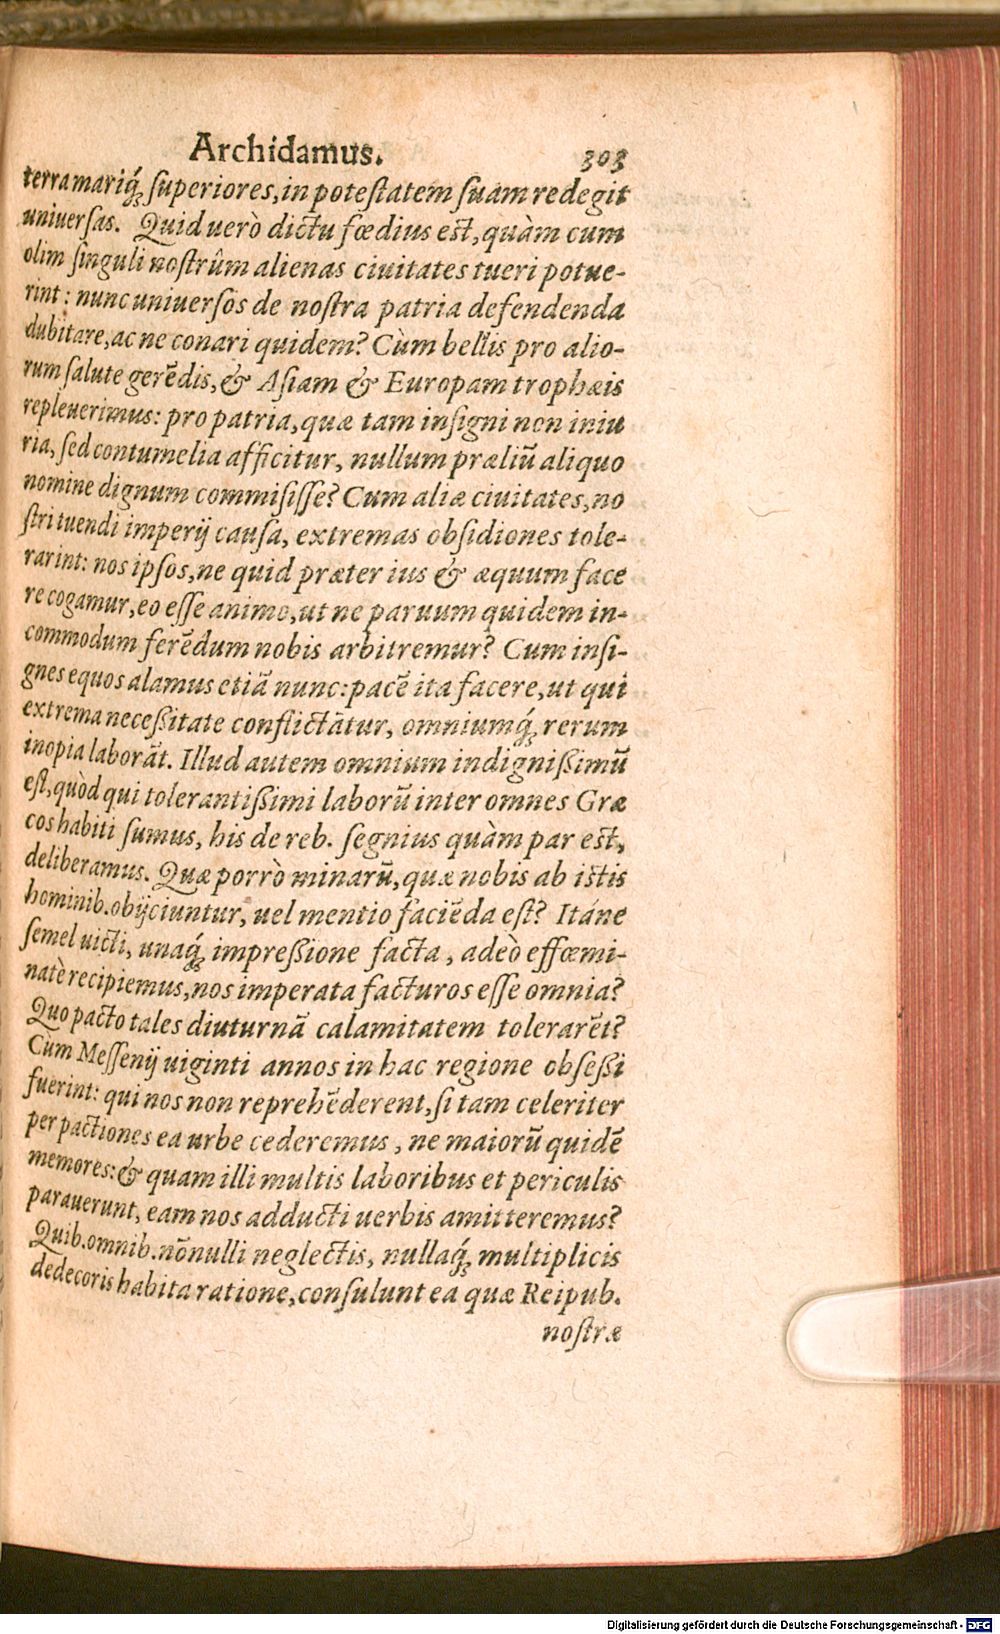 Archidamus. 303
terra mariq́; ſuperiores, in poteſtatem ſuam redegit
uniuerſas. Quid uerò dictu fœdius eſt, quàm cum
olim ſinguli noſtrûm alienas ciuitates tueri potue-
rint: nunc uniuerſos de noſtra patria defendenda
dubitare, ac ne conari quidem? Cùm bellis pro alio-
rum ſalute gerēdis, & Aſiam & Europam trophæis
repleuerimus: pro patria, quæ tam inſigni non iniu
ria, ſed contumelia afficitur, nullum præliū aliquo
nomine dignum commiſiſſe? Cum aliæ ciuitates, no
ſtri tuendi imperij cauſa, extremas obſidiones tole-
rarint: nos ipſos, ne quid præter ius & æquum face
re cogamur, eo eſſe animo, ut ne paruum quidem in-
commodum ferēdum nobis arbitremur? Cum inſi-
gnes equos alamus etiā nunc: pacē ita facere, ut qui
extrema neceßitate conflictātur, omniumq́; rerum
inopia laborāt. Illud autem omnium indignißimū
eſt, quòd qui tolerantißimi laborū inter omnes Græ
cos habiti ſumus, his de reb. ſegnius quàm par eſt,
deliberamus. Quæ porrò minarū, quæ nobis ab iſtis
hominib. obijciuntur, uel mentio faciēda eſt? Itáne
ſemel uicti, unaq́; impreßione facta, adeò effœmi-
natè recipiemus, nos imperata facturos eſſe omnia?
Quo pacto tales diuturnā calamitatem tolerarēt?
Cùm Meſſenij uiginti annos in hac regione obſeßi
fuerint: qui nos non reprehēderent, ſi tam celeriter
per pactiones ea urbe cederemus, ne maiorū quidē
memores: & quam illi multis laboribus et periculis
parauerunt, eam nos adducti uerbis amitteremus?
Quib. omnib. nōnulli neglectis, nullaq́; multiplicis
dedecoris habita ratione, conſulunt ea quæ Reipub.
noſtræ
Digitalisierung gefördert durch die Deutsche Forschungsgemeinschaft - DFG